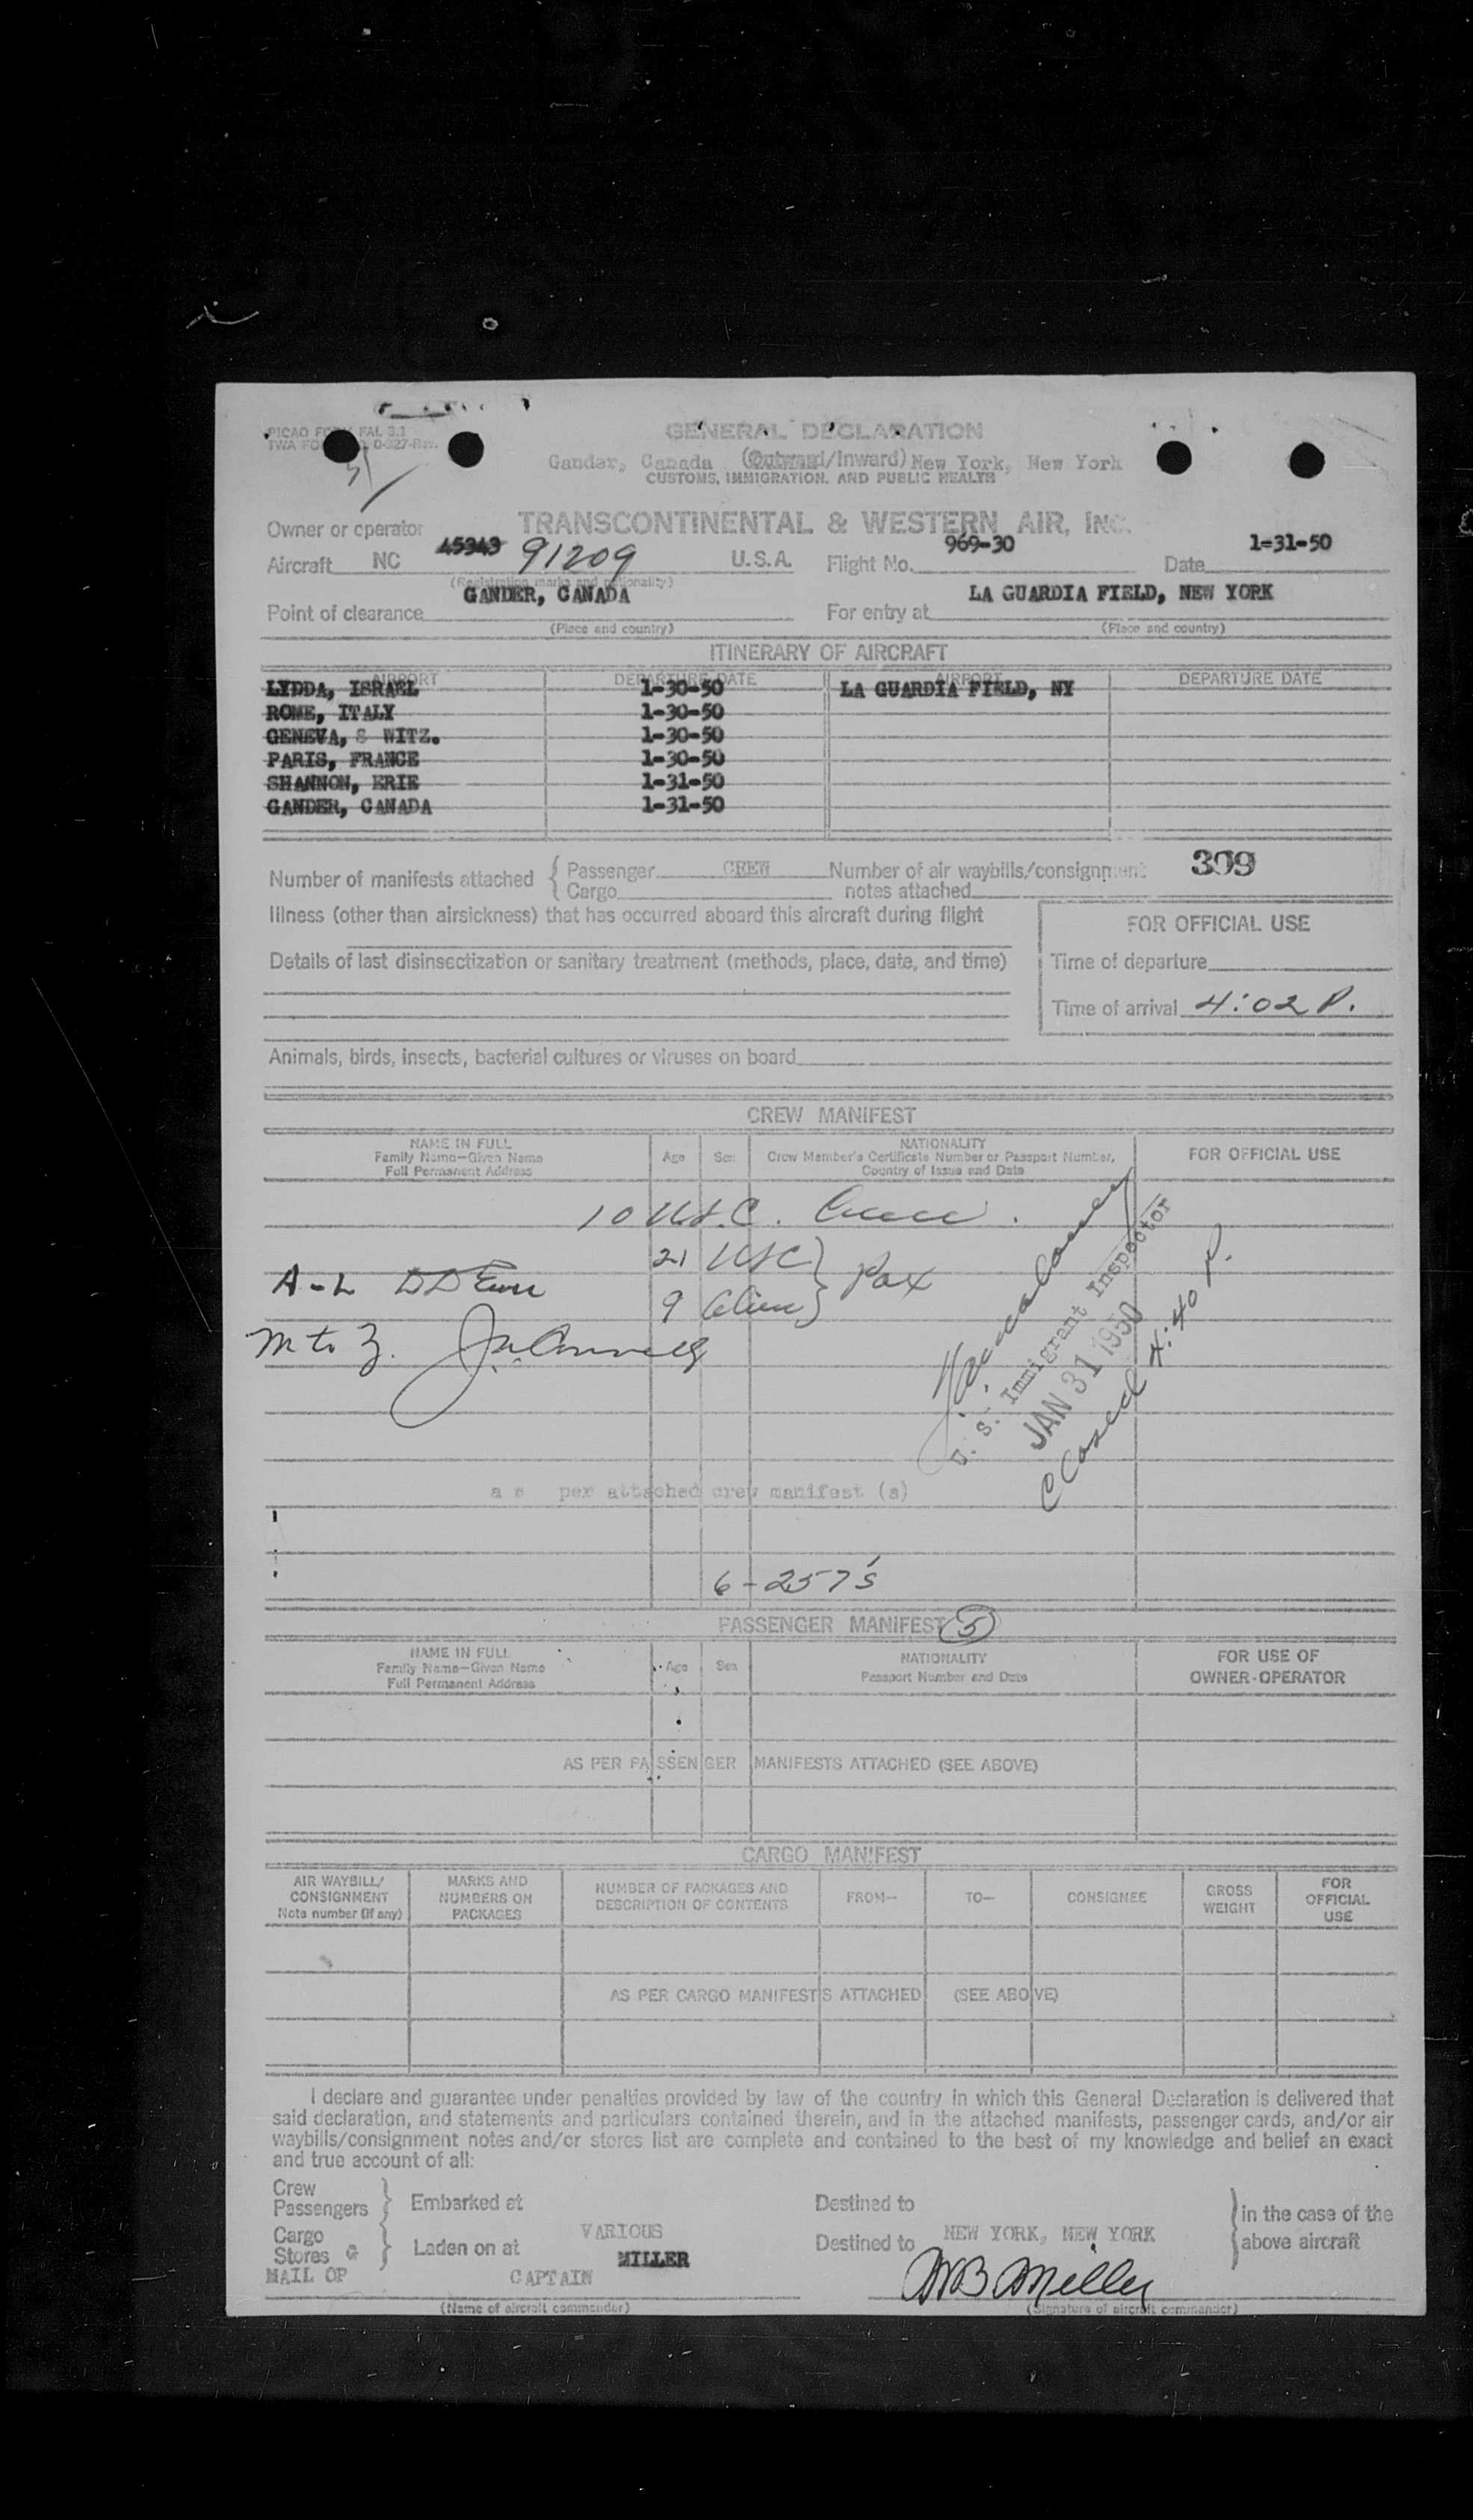 PICAO FORM FAL 3.1
TWA FO 0-327-Rev.
GENERAL DECLARATION
Gander, Canada (Outward/Inward) New York, New York
CUSTOMS, IMMIGRATION, AND PUBLIC HEALTH
Owner or operator TRANSCONTINENTAL & WESTERN AIR, INC.
Aircraft NC 45343 91209 U.S.A. Flight No. 969-30 Date 1-31-50
(Registration marks and nationality)
Point of clearance GANDER, CANADA For entry at LA GUARDIA FIELD, NEW YORK
(Place and country) (Place and country)
ITINERARY OF AIRCRAFT
AIRPORT DEPARTURE DATE AIRPORT DEPARTURE DATE
LYDDA, ISRAEL 1-30-50 LA GUARDIA FIELD, NY
ROME, ITALY 1-30-50
GENEVA, S WITZ. 1-30-50
PARIS, FRANCE 1-30-50
SHANNON, ERIE 1-31-50
GANDER, CANADA 1-31-50
Number of manifests attached { Passenger CREW Number of air waybills/consignment 309
Cargo notes attached
Illness (other than airsickness) that has occurred aboard this aircraft during flight
FOR OFFICIAL USE
Details of last disinsectization or sanitary treatment (methods, place, date, and time)
Time of departure
Time of arrival 4:02 P.
Animals, birds, insects, bacterial cultures or viruses on board
CREW MANIFEST
NAME IN FULL
Family Name—Given Name
Full Permanent Address
Age Sex
NATIONALITY
Crew Member's Certificate Number or Passport Number,
Country of Issue and Date
FOR OFFICIAL USE
10 U.S.C. Crew.
21 USC } Pax
A-L
9 Alien }
M to Z.
U. S. Immigrant Inspector
JAN 31 1950
Closed 4:40 P.
a s per attached crew manifest (s)
6-257's
PASSENGER MANIFEST 5
NAME IN FULL
Family Name—Given Name
Full Permanent Address
Age Sex
NATIONALITY
Passport Number and Date
FOR USE OF
OWNER-OPERATOR
AS PER PASSENGER MANIFESTS ATTACHED (SEE ABOVE)
CARGO MANIFEST
AIR WAYBILL/
CONSIGNMENT
Note number (if any)
MARKS AND
NUMBERS ON
PACKAGES
NUMBER OF PACKAGES AND
DESCRIPTION OF CONTENTS
FROM—
TO—
CONSIGNEE
GROSS
WEIGHT
FOR
OFFICIAL
USE
AS PER CARGO MANIFESTS ATTACHED (SEE ABOVE)
I declare and guarantee under penalties provided by law of the country in which this General Declaration is delivered that
said declaration, and statements and particulars contained therein, and in the attached manifests, passenger cards, and/or air
waybills/consignment notes and/or stores list are complete and contained to the best of my knowledge and belief an exact
and true account of all:
Crew
Passengers } Embarked at Destined to
Cargo
Stores } Laden on at VARIOUS Destined to NEW YORK, NEW YORK
} in the case of the
above aircraft
MAIL OP CAPTAIN MILLER WB Miller
(Name of aircraft commander) (Signature of aircraft commander)